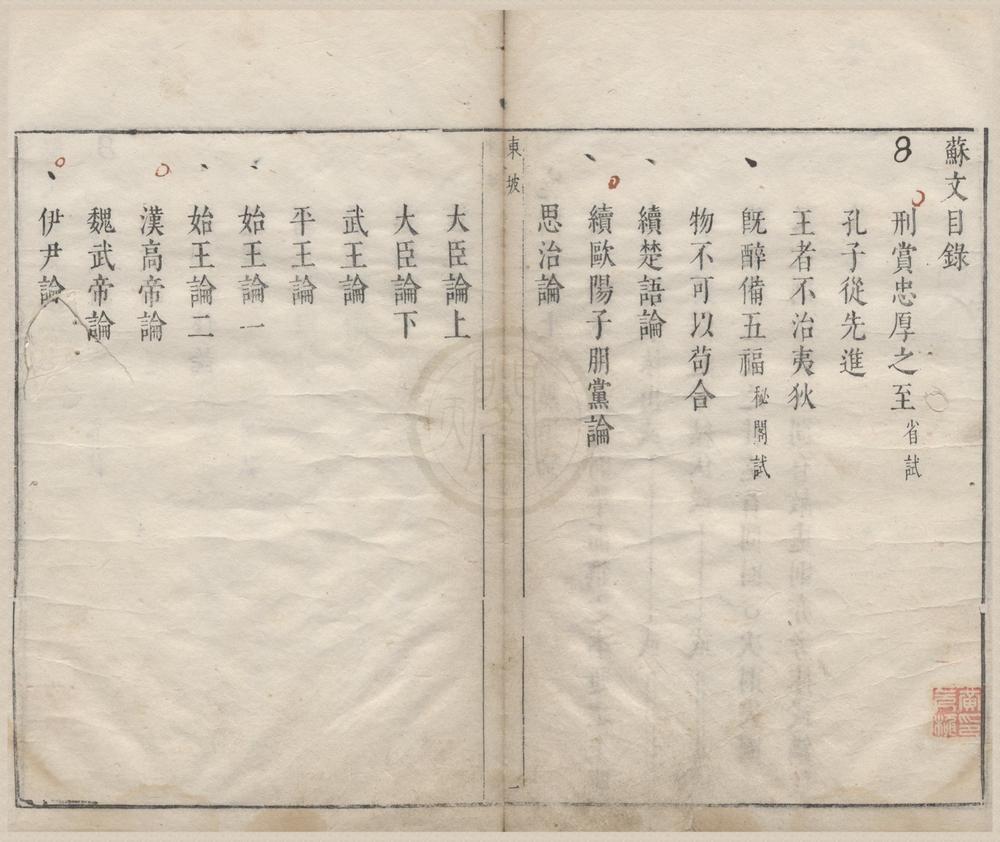 蘇文目錄
8
刑賞忠厚之至 省試
孔子從先進
王者不治夷狄
旣醉備五福 秘閣試
物不可以苟合
續楚語論
續歐陽子朋黨論
思治論
東坡
一
大臣論上
大臣論下
武王論
平王論
始王論一
始王論二
漢高帝論
魏武帝論
伊尹論